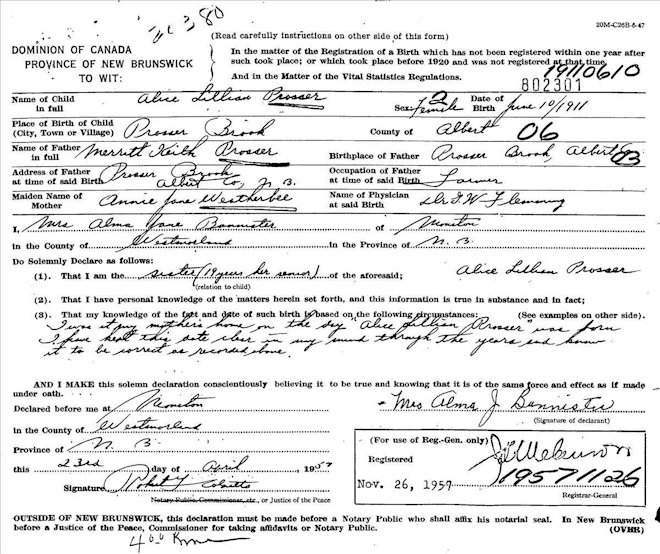 20M-C26B-5-47
(Read carefully instructions on other side of this form)
DOMINION OF CANADA
PROVINCE OF NEW BRUNSWICK
TO WIT:
In the matter of the Registration of a Birth which has not been registered within one year after
such took place; or which took place before 1920 and was not registered at that time.
And in the Matter of the Vital Statistics Regulations.
19110610
802301
Name of Child in full Alice Lillian Prosser Sex Female Date of Birth June 10/1911
Place of Birth of Child (City, Town or Village) Prosser Brook County of Albert 06
Name of Father in full Merritt Keith Prosser Birthplace of Father Prosser Brook, Albert 03
Address of Father at time of said Birth Prosser Brook Albert Co, N. B. Occupation of Father at time of said Birth Farmer
Maiden Name of Mother Annie Jane Weatherbee Name of Physician at said Birth Dr. F. W. Flemming
I, Mrs Alma Jane Bannister of Moncton
in the County of Westmorland in the Province of N. B.
Do Solemnly Declare as follows:
(1). That I am the sister (19 years her senior) of the aforesaid; Alice Lillian Prosser
(relation to child)
(2). That I have personal knowledge of the matters herein set forth, and this information is true in substance and in fact;
(3). That my knowledge of the fact and date of such birth is based on the following circumstances: (See examples on other side).
I was at my mothers home on the day "Alice Lillian Prosser" was born
I have kept this date clear in my mind through the years and know
it to be correct as recorded above.
AND I MAKE this solemn declaration conscientiously believing it to be true and knowing that it is of the same force and effect as if made
under oath.
Declared before me at Moncton
Mrs Alma J Bannister
(Signature of declarant)
in the County of Westmorland
Province of N. B.
this 23rd day of April, 1957
Signature
Notary Public, Commissioner, etc., or Justice of the Peace
(For use of Reg.-Gen. only)
Registered
19571126
Nov. 26, 1957
Registrar-General
OUTSIDE OF NEW BRUNSWICK, this declaration must be made before a Notary Public who shall affix his notarial seal. In New Brunswick
before a Justice of the Peace, Commissioner for taking affidavits or Notary Public. (OVER)